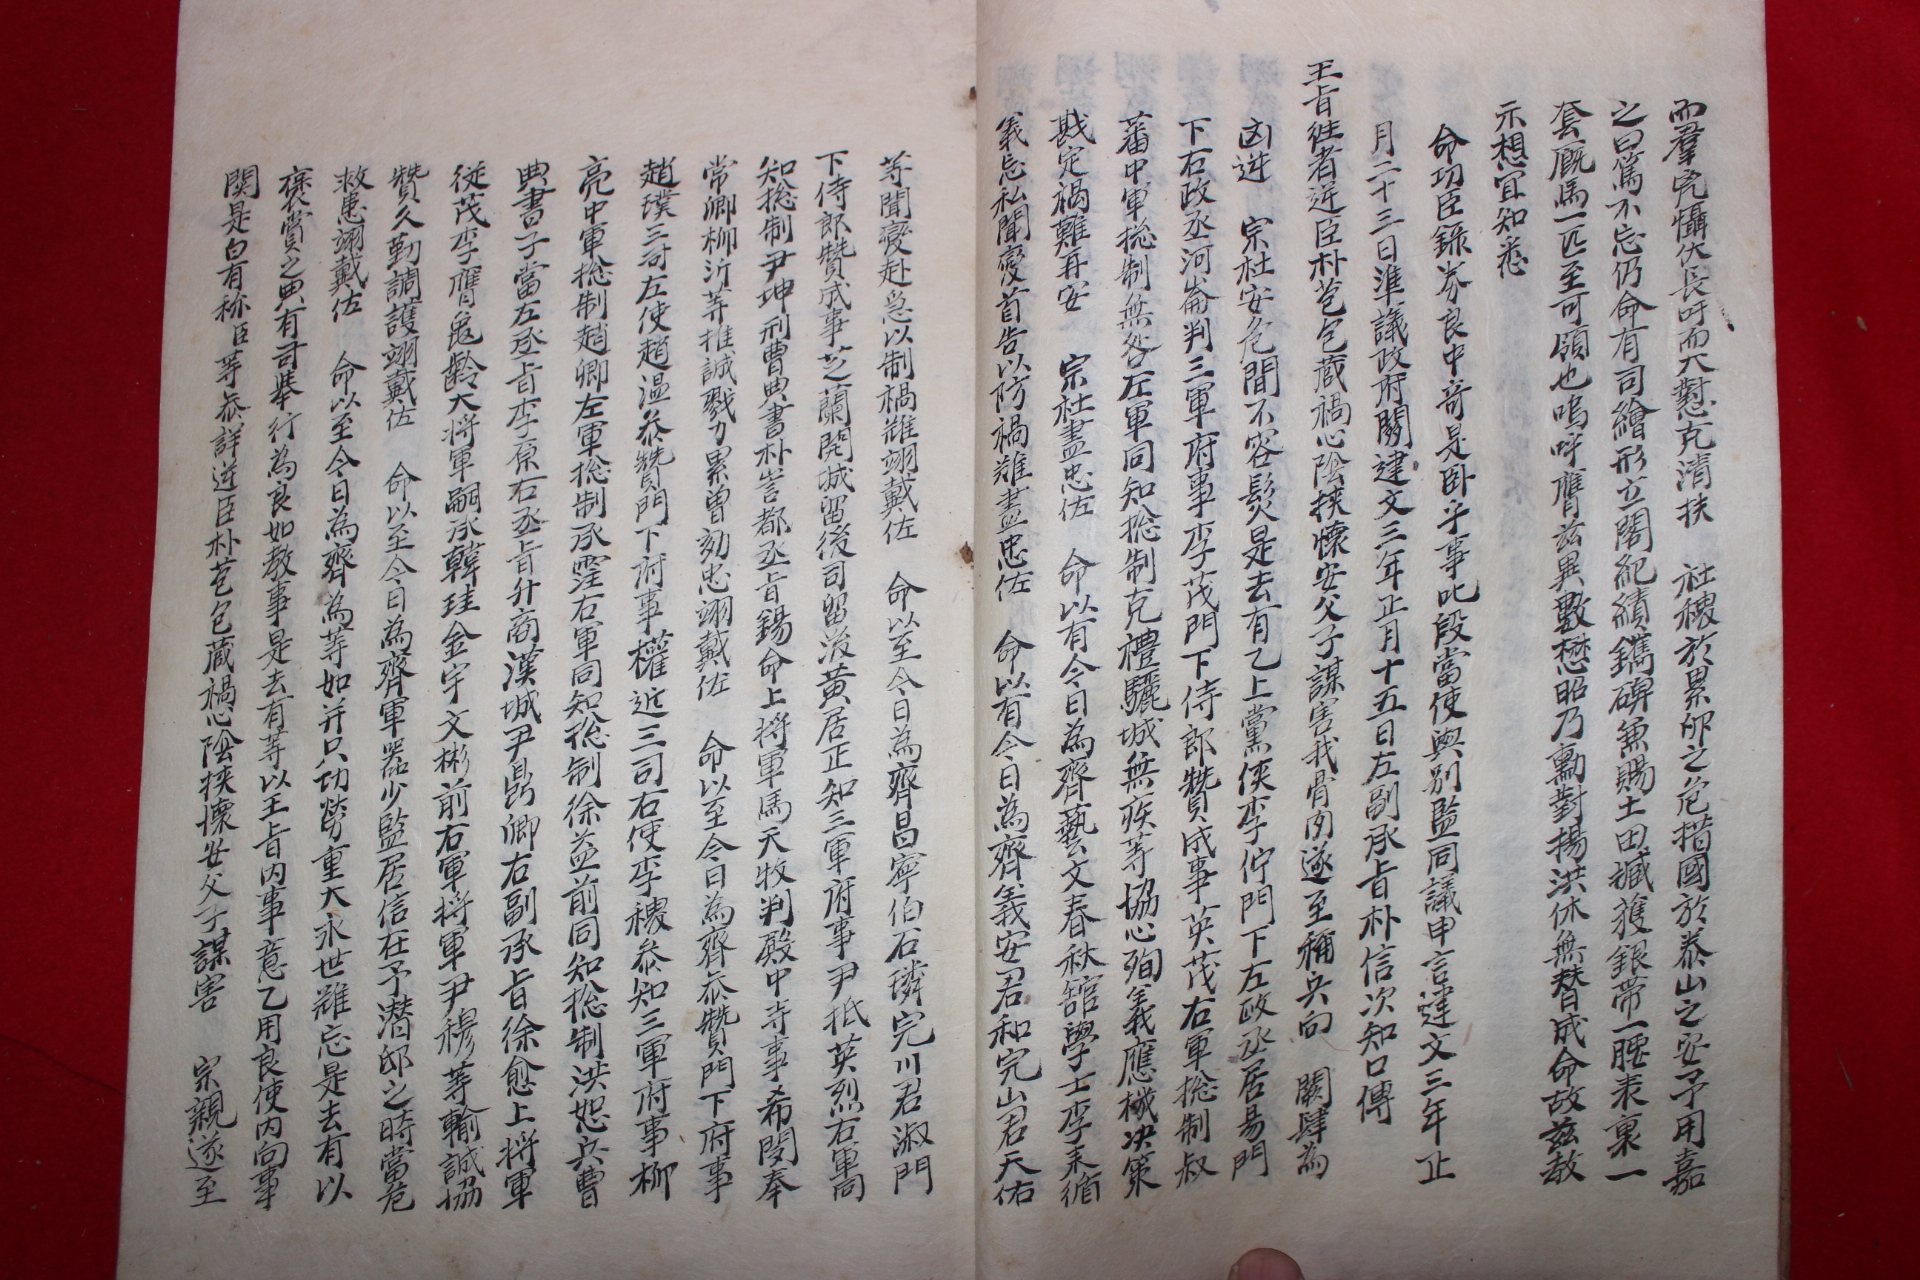 而羣兇懾伏長吁而大憝克淸扶　社稷於累卵之危措國於泰山之安予用嘉
之曰篤不忘仍命有司繪形立閣紀績鐫碑兼賜土田臧獲銀帶一腰表裏一
套廐馬一匹至可領也嗚呼膺玆異數懋昭乃勳對揚洪休無替成命故玆敎
示想宜知悉
命功臣錄券良中竒是卧乎事叱段當使與別監同議申言建文三年正
月二十三日準議政府關建文三年正月十五日左副承旨朴信次知口傳
王旨徃者逆臣朴苞包藏禍心陰挾懷安父子謀害我骨肉遂至稱兵向　闕肆爲
凶逆　宗社安危間不容髮是去有乙上黨侯李佇門下左政丞居易門
下右政丞河崙判三軍府事李茂門下侍郎贊成事英茂右軍摠制叔
蕃中軍摠制無咎左軍同知摠制克禮驪城無疾等協心殉義應機决策
戡定禍難再安　宗社盡忠佐　命以有今日爲齊藝文春秋舘學士李來循
義忘私聞變首告以防禍難盡忠佐　命以有今日爲齊義安君和完山君天佑
等聞變赴急以制禍難翊戴佐　命以至今日爲齊昌寧伯石璘完川君淑門
下侍郎贊成事芝蘭開城留後司留後黃居正知三軍府事尹抵英烈右軍同
知摠制尹坤刑曹典書朴訔都丞旨錫命上將軍馬天牧判殿中寺事希閔奉
常卿柳沂等推誠戮力累曾効忠翊戴佐　命以至今日爲齊叅贊門下府事
趙璞三司左使趙溫叅贊門下府事權近三司右使李稷叅知三軍府事柳
亮中軍摠制趙卿左軍摠制承霔右軍同知摠制徐益前同知摠制洪恕兵曹
典書子當左丞旨李原右丞旨升商漢城尹鼎卿右副承旨徐愈上將軍
從茂李膺龜齡大將軍嗣承韓珪金宇文彬前右軍將軍尹穆等輸誠協
贊久勤調護翊戴佐　命以至今日爲齊軍器少監居信在予潛邸之時當危
救患翊戴佐　命以至今日爲齊爲等如并只功勞重大永世難忘是去有以
褒賞之典有司擧行爲良如敎事是去有等以王旨內事意乙用良使內向事
關是白有称臣等叅詳逆臣朴苞包藏禍心陰挾懷安父子謀害　宗親遂至